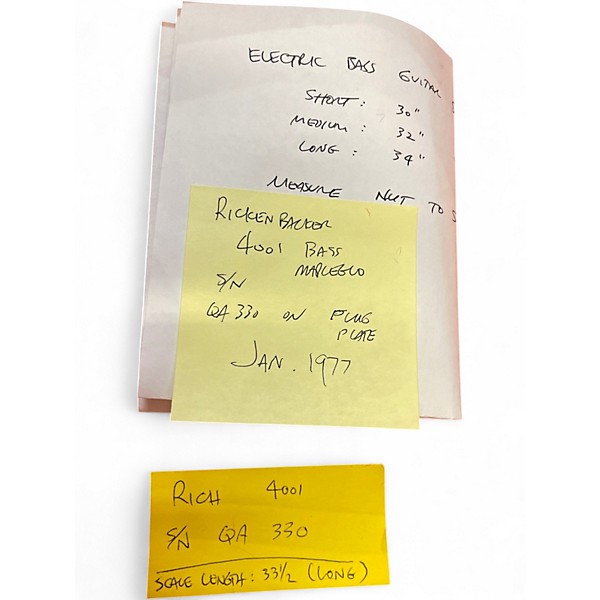 ELECTRIC BASS GUITAR
SHORT: 30"
MEDIUM: 32"
LONG: 34"
MEASURE NUT TO S
RICKENBACKER
4001 BASS
MAPLEGLO
S/N
QA 330 ON PLUG
PLATE
JAN. 1977
RICH 4001
S/N QA 330
SCALE LENGTH: 33 1/2 (LONG)